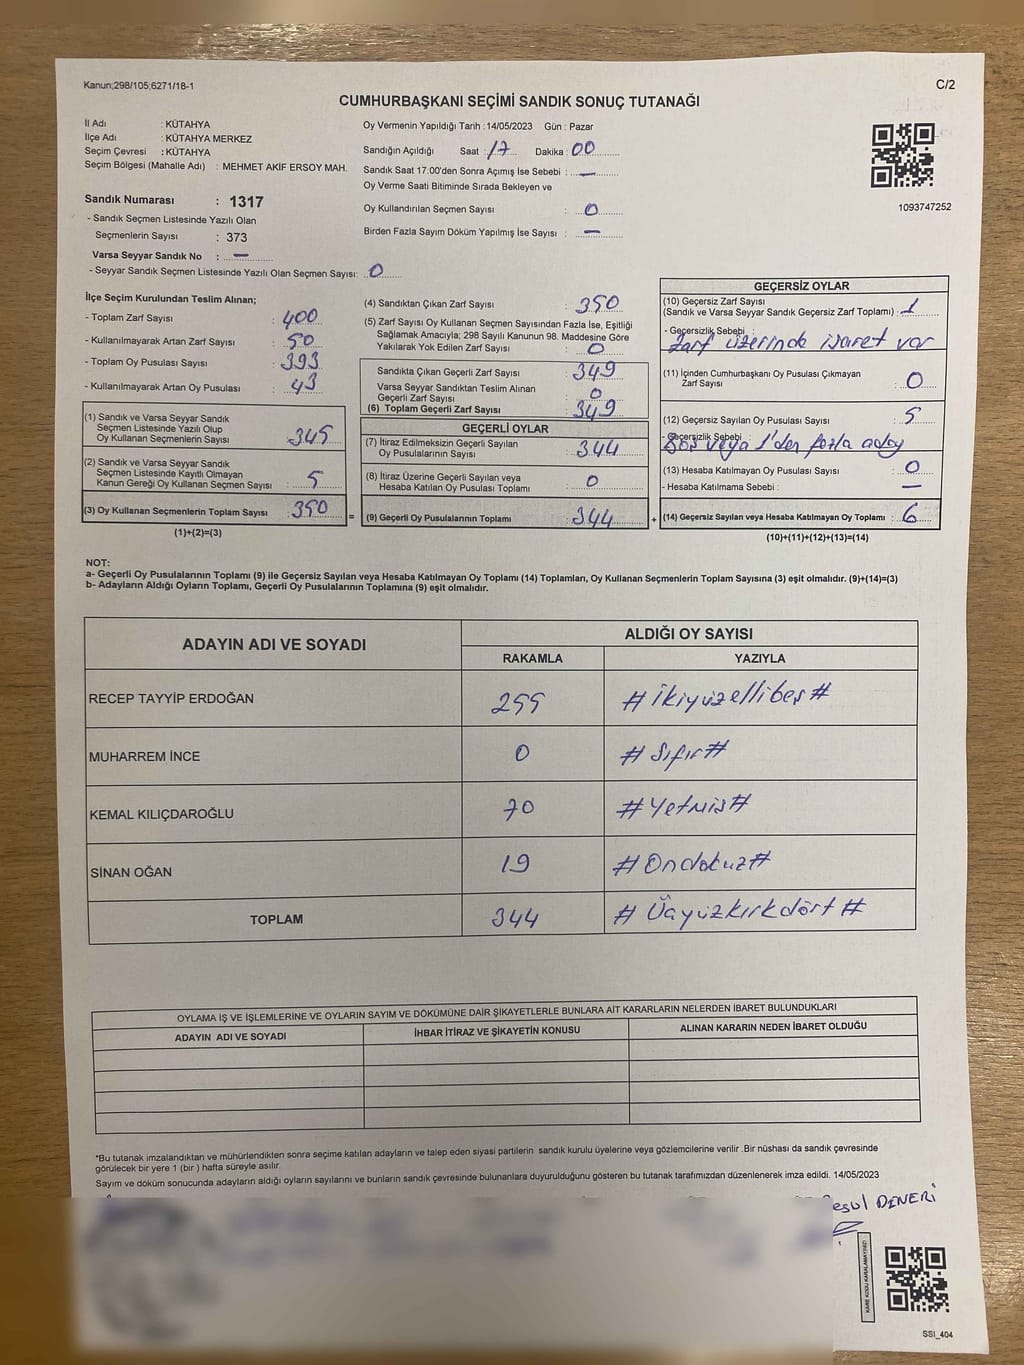 Kanun;298/105;6271/18-1
C/2
CUMHURBAŞKANI SEÇİMİ SANDIK SONUÇ TUTANAĞI
İl Adı : KÜTAHYA
İlçe Adı : KÜTAHYA MERKEZ
Seçim Çevresi : KÜTAHYA
Seçim Bölgesi (Mahalle Adı) : MEHMET AKİF ERSOY MAH.
Sandık Numarası : 1317
- Sandık Seçmen Listesinde Yazılı Olan
Seçmenlerin Sayısı : 373
Varsa Seyyar Sandık No : —
- Seyyar Sandık Seçmen Listesinde Yazılı Olan Seçmen Sayısı: 0
Oy Vermenin Yapıldığı Tarih : 14/05/2023 Gün : Pazar
Sandığın Açıldığı Saat : 17 Dakika : 00
Sandık Saat 17:00'den Sonra Açımış İse Sebebi : —
Oy Verme Saati Bitiminde Sırada Bekleyen ve
Oy Kullandırılan Seçmen Sayısı : 0
Birden Fazla Sayım Döküm Yapılmış İse Sayısı : —
1093747252
İlçe Seçim Kurulundan Teslim Alınan;
- Toplam Zarf Sayısı : 400
- Kullanılmayarak Artan Zarf Sayısı : 50
- Toplam Oy Pusulası Sayısı : 393
- Kullanılmayarak Artan Oy Pusulası : 43
(1) Sandık ve Varsa Seyyar Sandık
Seçmen Listesinde Yazılı Olup
Oy Kullanan Seçmenlerin Sayısı : 345
(2) Sandık ve Varsa Seyyar Sandık
Seçmen Listesinde Kayıtlı Olmayan
Kanun Gereği Oy Kullanan Seçmen Sayısı : 5
(3) Oy Kullanan Seçmenlerin Toplam Sayısı : 350
(1)+(2)=(3)
=
(4) Sandıktan Çıkan Zarf Sayısı : 350
(5) Zarf Sayısı Oy Kullanan Seçmen Sayısından Fazla İse, Eşitliği
Sağlamak Amacıyla; 298 Sayılı Kanunun 98. Maddesine Göre
Yakılarak Yok Edilen Zarf Sayısı : 0
Sandıkta Çıkan Geçerli Zarf Sayısı : 349
Varsa Seyyar Sandıktan Teslim Alınan
Geçerli Zarf Sayısı : 0
(6) Toplam Geçerli Zarf Sayısı : 349
GEÇERLİ OYLAR
(7) İtiraz Edilmeksizin Geçerli Sayılan
Oy Pusulalarının Sayısı : 344
(8) İtiraz Üzerine Geçerli Sayılan veya
Hesaba Katılan Oy Pusulası Toplamı : 0
(9) Geçerli Oy Pusulalarının Toplamı : 344
+
GEÇERSİZ OYLAR
(10) Geçersiz Zarf Sayısı
(Sandık ve Varsa Seyyar Sandık Geçersiz Zarf Toplamı) : 1
- Geçersizlik Sebebi :
Zarf üzerinde işaret var
(11) İçinden Cumhurbaşkanı Oy Pusulası Çıkmayan
Zarf Sayısı : 0
(12) Geçersiz Sayılan Oy Pusulası Sayısı : 5
- Geçersizlik Sebebi :
Boş veya 1'den fazla aday
(13) Hesaba Katılmayan Oy Pusulası Sayısı : 0
- Hesaba Katılmama Sebebi : —
(14) Geçersiz Sayılan veya Hesaba Katılmayan Oy Toplamı : 6
(10)+(11)+(12)+(13)=(14)
NOT:
a- Geçerli Oy Pusulalarının Toplamı (9) ile Geçersiz Sayılan veya Hesaba Katılmayan Oy Toplamı (14) Toplamları, Oy Kullanan Seçmenlerin Toplam Sayısına (3) eşit olmalıdır. (9)+(14)=(3)
b- Adayların Aldığı Oyların Toplamı, Geçerli Oy Pusulalarının Toplamına (9) eşit olmalıdır.
ADAYIN ADI VE SOYADI ALDIĞI OY SAYISI
RAKAMLA YAZIYLA
RECEP TAYYİP ERDOĞAN 255 #İkiyüzellibeş#
MUHARREM İNCE 0 #Sıfır#
KEMAL KILIÇDAROĞLU 70 #Yetmiş#
SİNAN OĞAN 19 #Ondokuz#
TOPLAM 344 #Üçyüzkırkdört#
OYLAMA İŞ VE İŞLEMLERİNE VE OYLARIN SAYIM VE DÖKÜMÜNE DAİR ŞİKAYETLERLE BUNLARA AİT KARARLARIN NELERDEN İBARET BULUNDUKLARI
ADAYIN ADI VE SOYADI İHBAR İTİRAZ VE ŞİKAYETİN KONUSU ALINAN KARARIN NEDEN İBARET OLDUĞU
*Bu tutanak imzalandıktan ve mühürlendikten sonra seçime katılan adayların ve talep eden siyasi partilerin sandık kurulu üyelerine veya gözlemcilerine verilir .Bir nüshası da sandık çevresinde
görülecek bir yere 1 (bir ) hafta süreyle asılır.
Sayım ve döküm sonucunda adayların aldığı oyların sayılarını ve bunların sandık çevresinde bulunanlara duyurulduğunu gösteren bu tutanak tarafımızdan düzenlenerek imza edildi. 14/05/2023
esul DİNERİ
KARE KODU KARALAMAYINIZ!
SSI_404